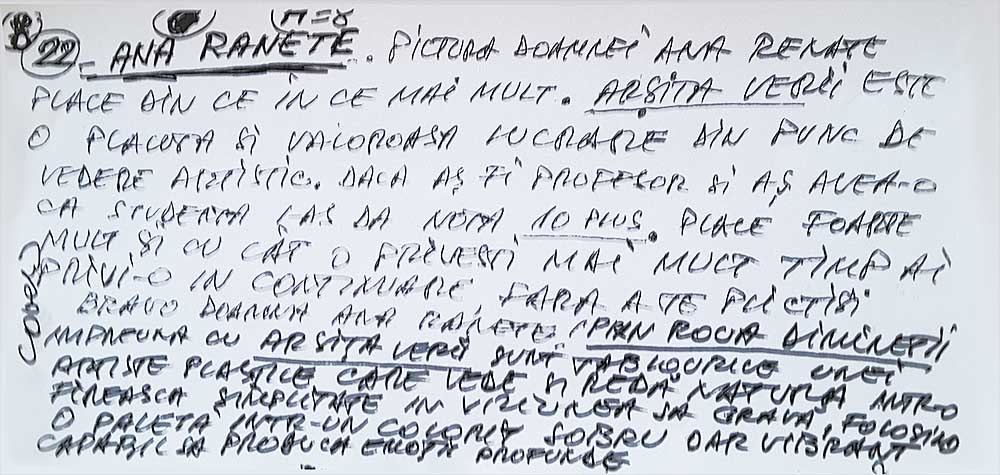 22 - ANA RANETE. PICTURA DOAMNEI ANA RENATE
PLACE DIN CE IN CE MAI MULT. ARȘITA VERII ESTE
O PLACUTA SI VALOROASA LUCRARE DIN PUNC DE
VEDERE ARTISTIC. DACA AȘ FI PROFESOR SI AȘ AVEA-O
CA STUDENTA I-AS DA NOTA 10 PLUS. PLACE FOARTE
MULT ȘI CU CÂT O PRIVESTI MAI MULT TIMP AI
PRIVI-O IN CONTINUARE, FARA A TE PLICTISI
BRAVO DOAMNA ANA RANETE! PRIN ROUA DIMINEȚII
IMPREUNA CU ARSITA VERII SUNT TABLOURILE UNEI
ARTISTE PLASTICE CARE VEDE SI REDĂ NATURA INTR-O
FIREASCA SIMPLITATE IN VIZIUNEA SA GRAVA, FOLOSIND
O PALETA INTR-UN COLORIT SOBRU DAR VIBRANT
CAPABIL SA PRODUCA EMOTII PROFUNDE